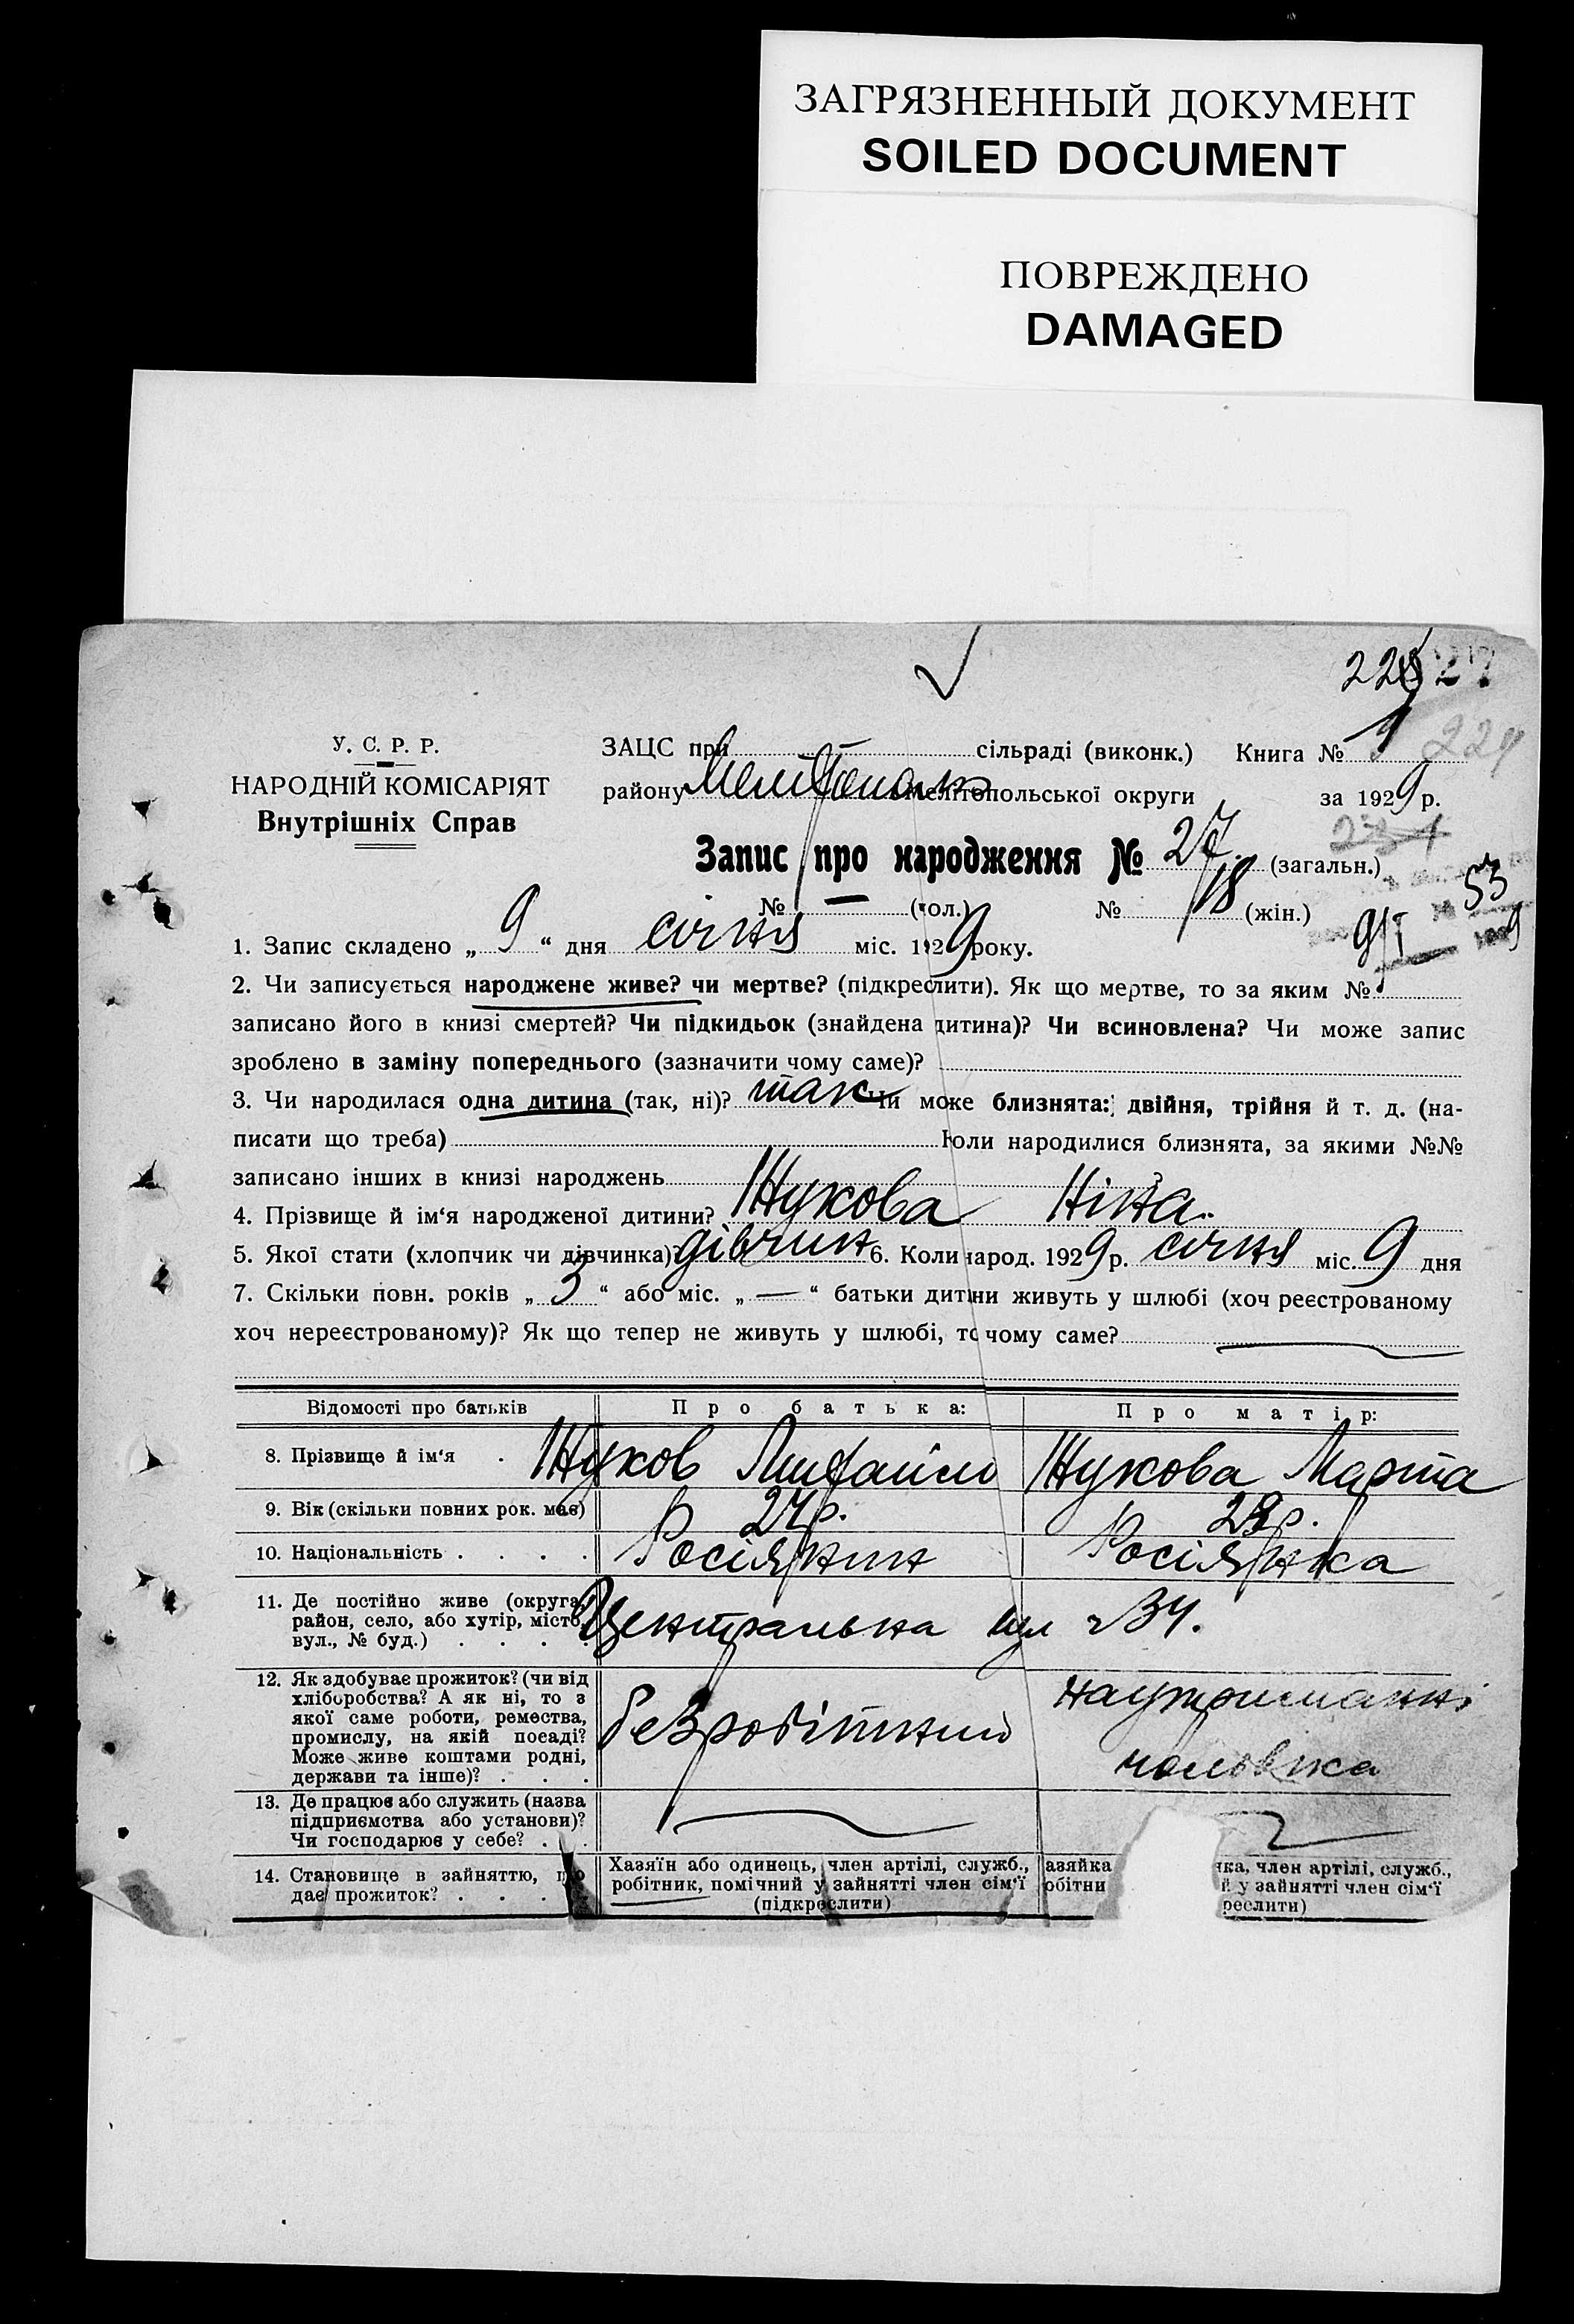 ЗАГРЯЗНЕННЫЙ ДОКУМЕНТ
SOILED DOCUMENT
ПОВРЕЖДЕНО
DAMAGED
У. С. Р. Р.
НАРОДНІЙ КОМІСАРІЯТ
Внутрішніх Справ
ЗАЦС при сільраді (виконк.) Книга № 1
району Мелітопольської округи за 1929 р.
Запис про народження № 27 (загальн.)
№ — (чол.) № 18 (жін.)
53
1. Запис складено „ 9 “ дня січня міс. 1929 року.
2. Чи записується народжене живе? чи мертве? (підкреслити). Як що мертве, то за яким №
записано його в книзі смертей? Чи підкидьок (знайдена дитина)? Чи всиновлена? Чи може запис
зроблено в заміну попереднього (зазначити чому саме)?
3. Чи народилася одна дитина (так, ні)? так Чи може близнята: двійня, трійня й т. д. (на-
писати що треба) Коли народилися близнята, за якими №№
записано інших в книзі народжень
4. Прізвище й ім‘я народженої дитини? Жукова Ніна.
5. Якої стати (хлопчик чи дівчинка)? дівчин 6. Коли народ. 1929 р. січня міс. 9 дня
7. Скільки повн. років „ 3 “ або міс. „ — “ батьки дитини живуть у шлюбі (хоч реєстрованому
хоч нереєстрованому)? Як що тепер не живуть у шлюбі, то чому саме?
Відомості про батьків Про батька: Про матір:
8. Прізвище й ім‘я . Жуков Михайло Жукова Марта
9. Вік (скільки повних рок. має) 27 р. 28 р.
10. Національність . . . . Росіянин Росіянка
11. Де постійно живе (округа,
район, село, або хутір, місто,
вул., № буд.) . . . . Центральна вул 34.
12. Як здобуває прожиток? (чи від
хліборобства? А як ні, то з
якої саме роботи, ремества,
промислу, на якій посаді?
Може живе коштами родні,
держави та інше)? . . .
безробітний
на утриманні
чоловіка
13. Де працює або служить (назва
підприємства або установи)?
Чи господарює у себе? . .
14. Становище в зайняттю, що
дає прожиток? . . . .
Хазяїн або одинець, член артілі, служб.,
робітник, помічний у зайнятті член сім‘ї
(підкреслити)
азяйка ка, член артілі, служб.,
обітни й у зайнятті член сім‘ї
реслити)